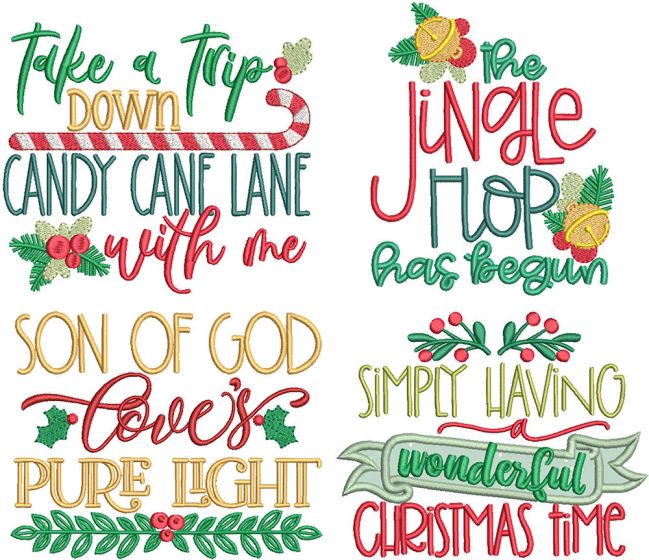 Take a Trip
DOWN
CANDY CANE LANE
with me
the
JiNGLE
HOP
has begun
SON OF GOD
Love's
PURE LIGHT
SiMPLY HAVING
a
wonderful
CHRISTMAS TiME